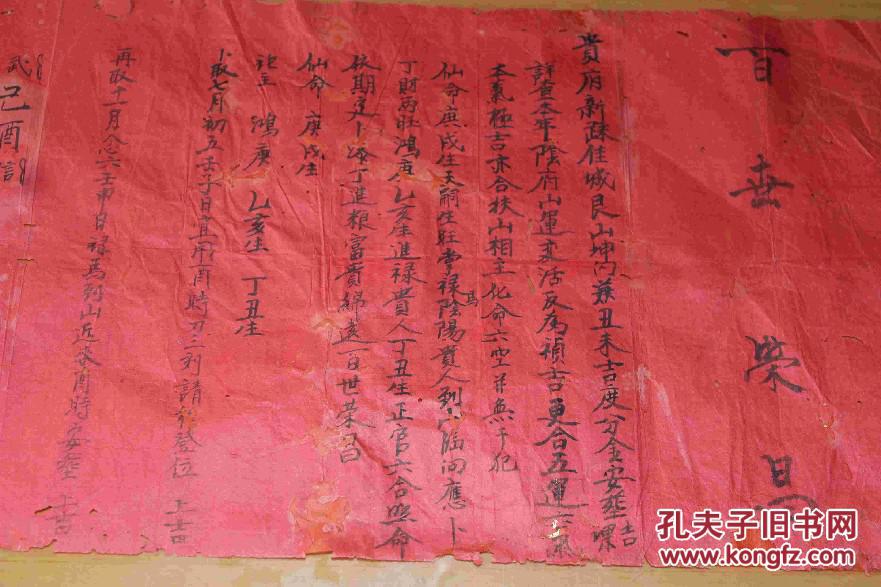 百世榮昌
貴府新踩佳城艮山坤向兼丑未吉度分金安塟課吉
詳查本年陰府山運变活反爲禎吉更合五運六氣
本氣極吉亦合扶山相主化命六空并無干犯
仙命庚戌生天嗣生旺掌禄馬陰陽貴人到山臨向應卜
丁財両旺鴻庚乙亥生進禄貴人丁丑生正官六合照命
依期定卜添丁進粮富貴綿遠百世荣昌
仙命庚戌生
祀主 鴻庚 乙亥生 丁丑生
卜取七月初五壬子日宜用酉時刀三刻請行登位 上吉
再取十一月念六壬申日禄馬到山近亥酉時安塟 上吉
武己酉
孔夫子旧书网
www.kongfz.com